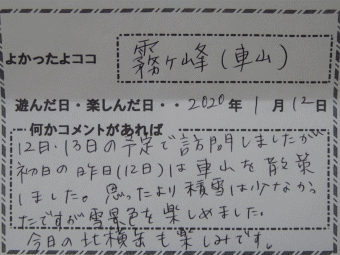 よかったよココ 霧ヶ峰(車山)
遊んだ日・楽しんだ日・・2020年1月12日
何かコメントがあれば
12日・13日の予定で訪問しましたが
初日の昨日(12日)は車山を散策
しました。思ったより積雪は少なかっ
たですが雪景色を楽しめました。
今日の北横岳も楽しみです。